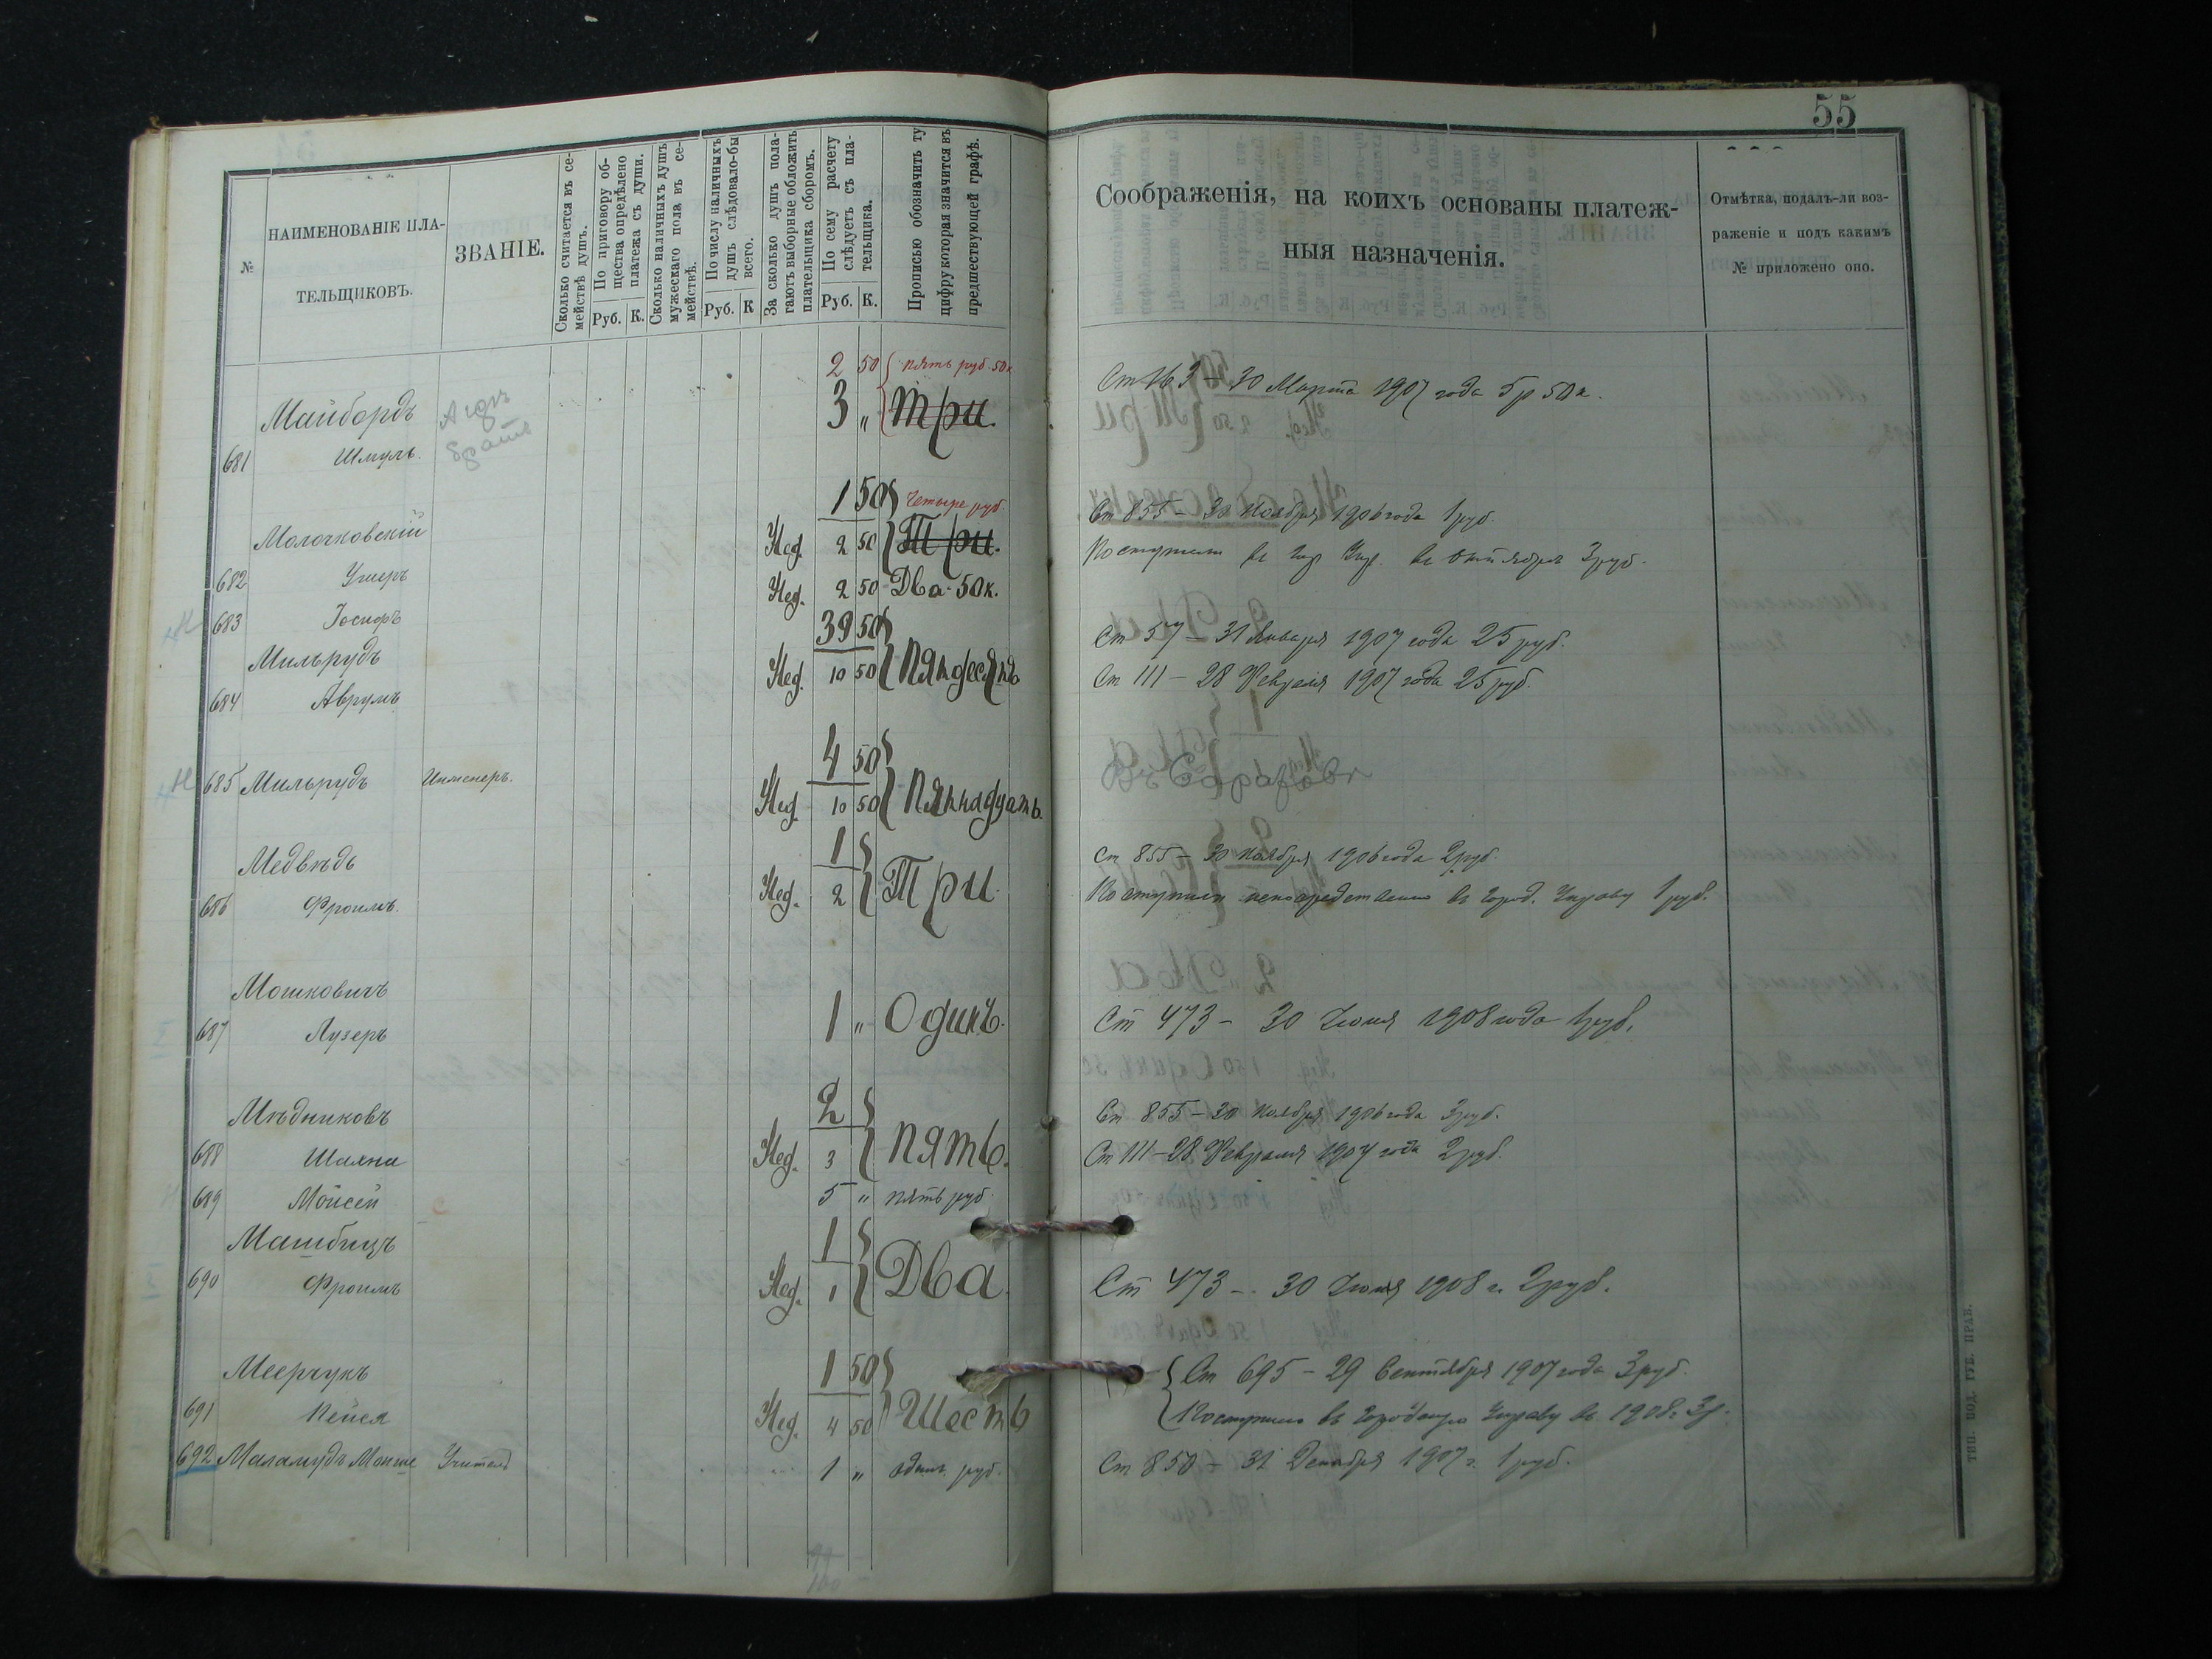 55
№
НАИМЕНОВАНІЕ ПЛА-
ТЕЛЬЩИКОВЪ.
ЗВАНІЕ.
Сколько считается въ се-
мействѣ душъ.
По приговору об-
щества опредѣлено
платежа съ души.
Руб. К.
Сколько наличныхъ душъ
мужескаго пола въ се-
мействѣ.
По числу наличныхъ
душъ слѣдовало-бы
всего.
Руб. К
За сколько душъ пола-
гаютъ выборные обложить
плательщика сборомъ.
По сему расчету
слѣдуетъ съ пла-
тельщика.
Руб. К.
Прописью обозначить ту
цифру которая значится въ
предшествующей графѣ.
Соображенія, на коихъ основаны платеж-
ныя назначенія.
Отмѣтка, подалъ-ли воз-
раженіе и подъ какимъ
№ приложено оно.
2 50 пять руб 50к
Майбордъ 3 " Три.
681 Шмуль братъ
Ст 163 – 30 Марта 1907 года 5р 50к.
1 50 Четыре руб.
Молочковскій Нед. 2 50 Три.
682 Ушеръ
Ст 855 – 30 Ноября 1906 года 1руб.
Поступили въ Гор Упр въ 3руб.
683 Іосифъ Нед. 2 50 Два 50к.
39 50
Мильрудъ Нед. 10 50 Пятьдесятъ
684 Аврумъ
Ст 57 – 31 Января 1907 года 25 руб.
Ст 111 – 28 Февраля 1907 года 25 руб.
4 50
685 Мильрудъ Инженеръ. Нед. 10 50 Пятнадцать.
Въ Саратовѣ
1
Медвѣдь Нед. 2 Три.
686 Фроимъ.
Ст 855 – 30 Ноября 1906 года 2руб.
Поступили непосредственно въ Город. Управу 1 руб.
Мошковичъ
687 Лузеръ 1 " Одинъ.
Ст 473 – 30 Іюня 1908 года 1руб.
2
Мѣдниковъ
688 Шаяна Нед. 3 Пять.
Ст 855 – 30 Ноября 1906 года 3руб.
Ст 111 – 28 Февраля 1907 года 2руб.
689 Мойсей 5 " пять руб.
Машбицъ 1
690 Фроимъ Нед. 1 Два.
Ст 473 – 30 Іюня 1908 г. 2руб.
Меерчукъ 1 50
691 Пейся Нед. 4 50 Шесть
Ст 695 – 29 Сентября 1907 года 3руб.
Поступило въ Городскую Управу въ 1908 г. 3р.
692 Маламудъ Мошке Учитель 1 " одинъ руб.
Ст 850 – 31 Декабря 1907 г. 1 руб.
ТИП. ПОД. ГУБ. ПРАВ.